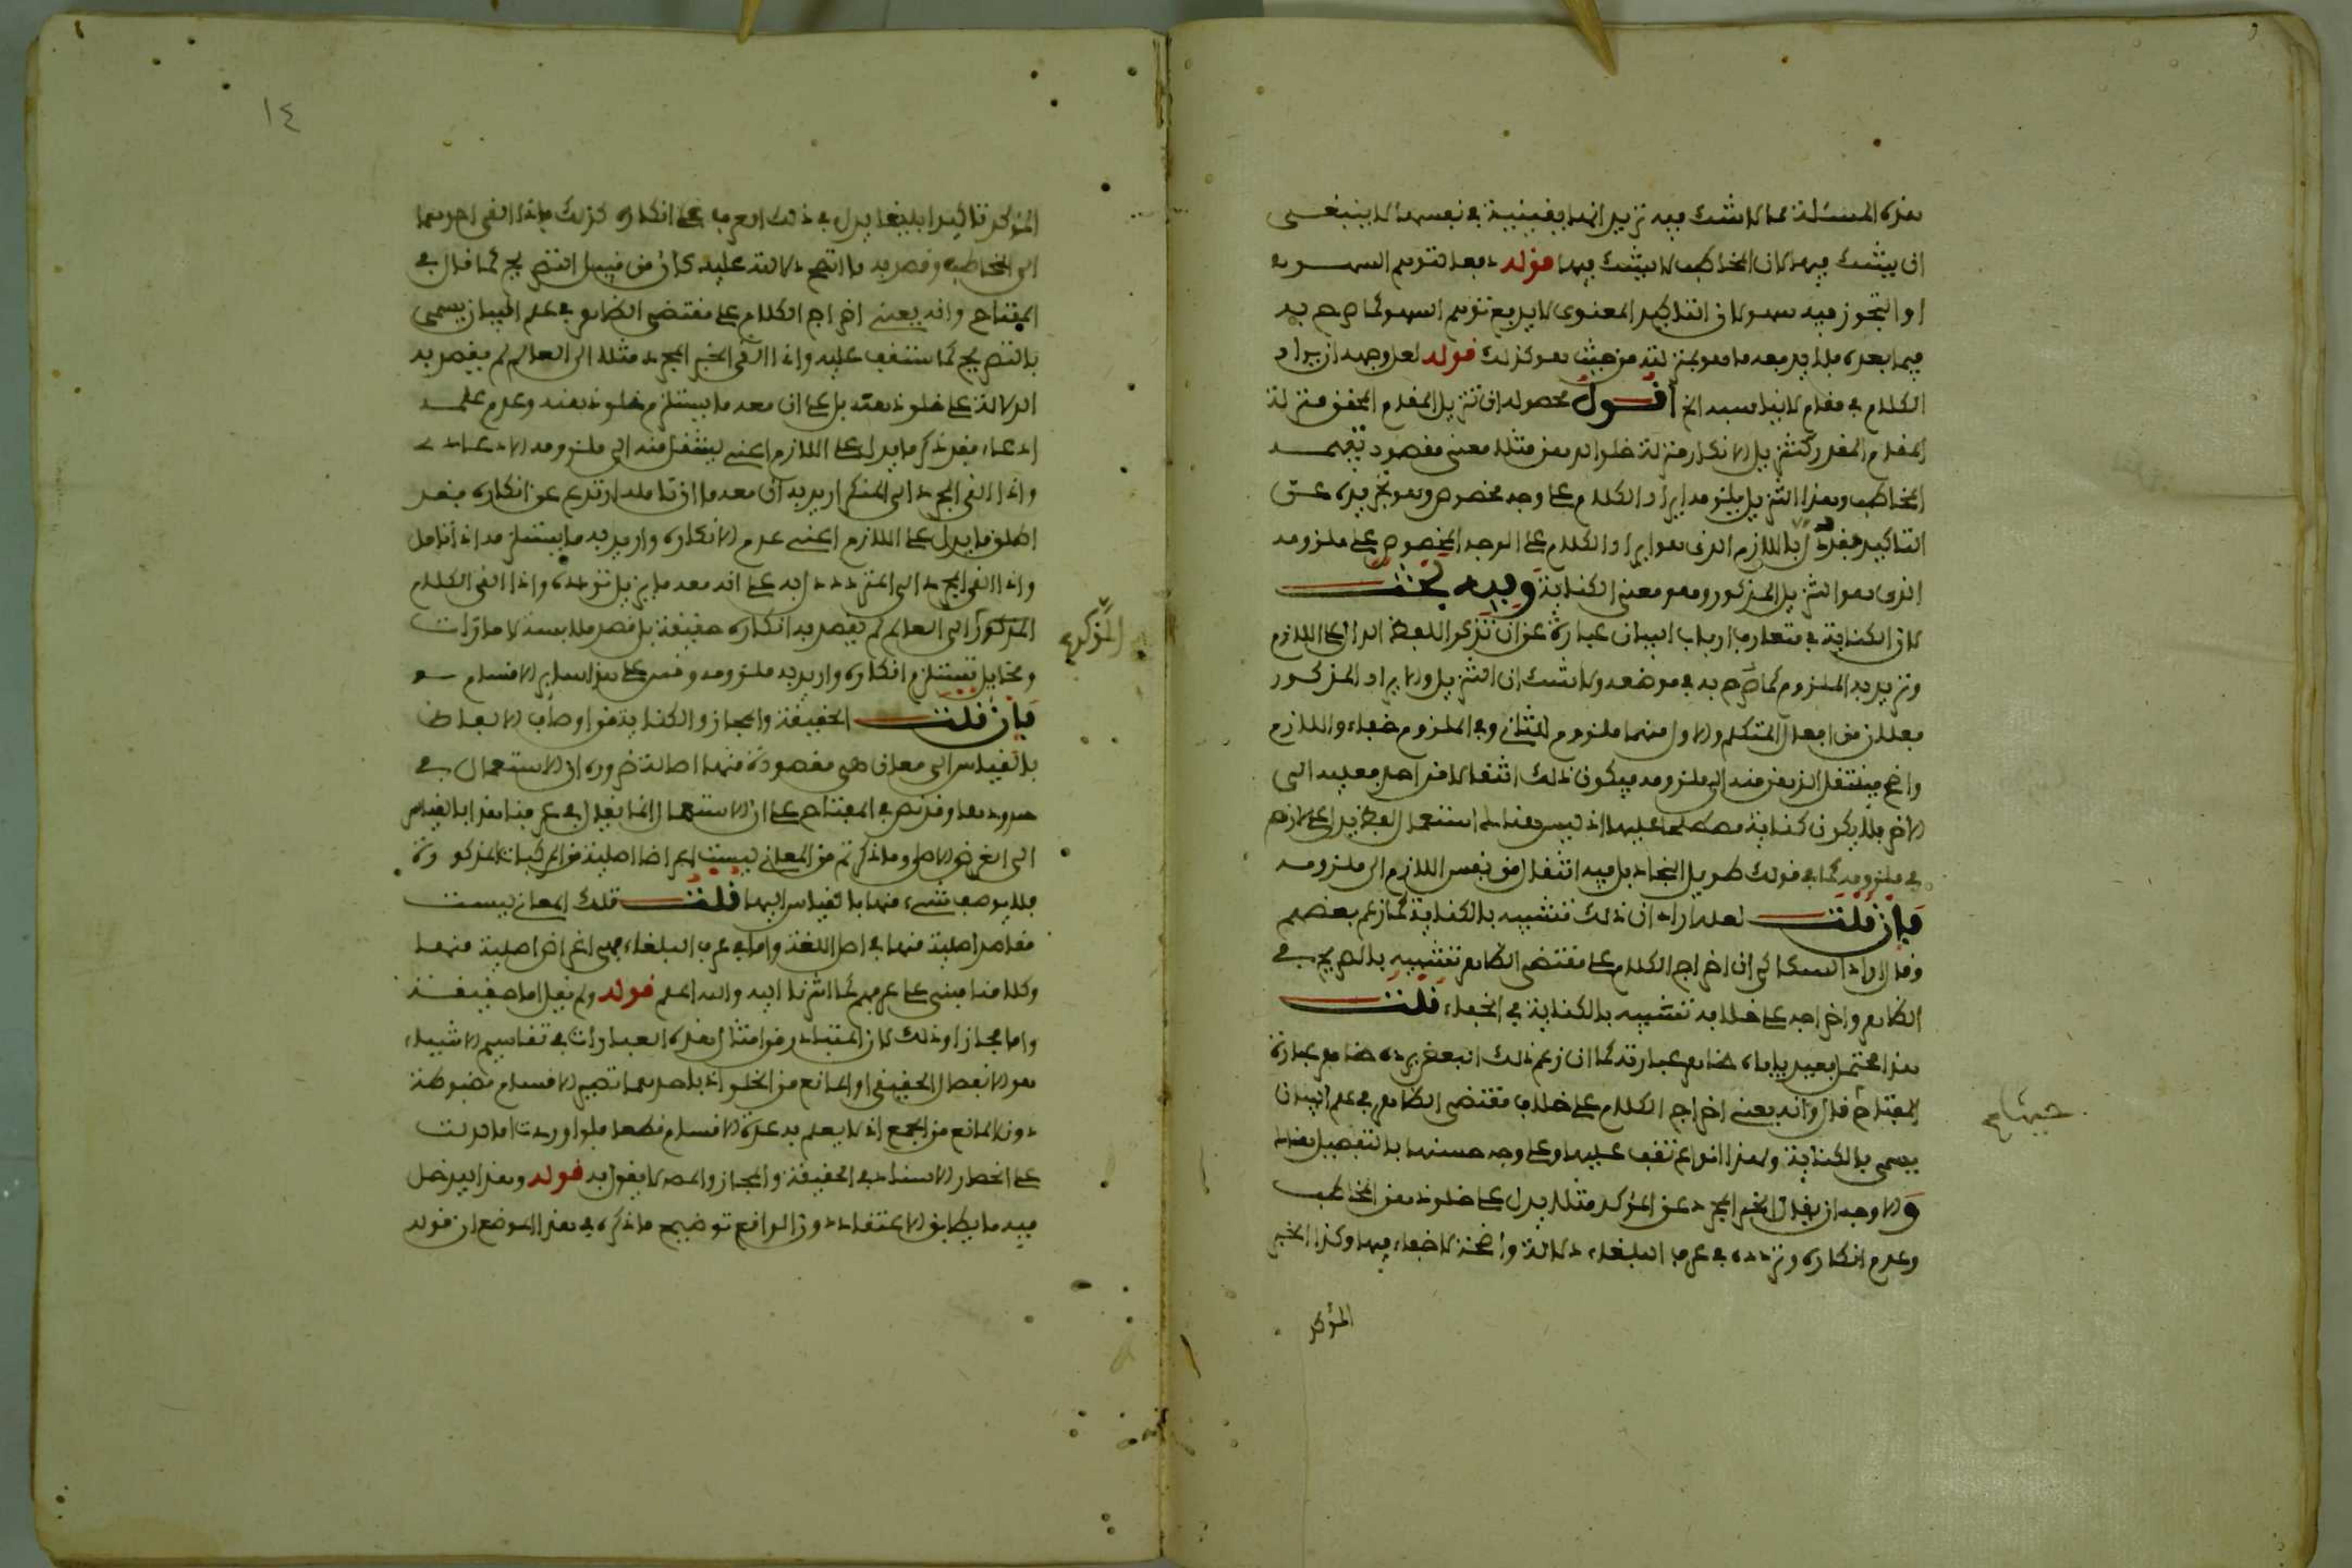 هذه المسئلة مما لا شك فيه تريد انها يقينية في نفسها لا ينبغي
ان يشك فيها لان المخاطب لا يشك فيها قوله دفعا لتوهم السهو
او التجوز فيه سهو لان التاكيد المعنوي لا يدفع توهم السهو كما صرح به
فيما بعده فلا بد معه ما هو بمنزلته من حيث هو كذلك قوله لعل وجهه ان يراد
الكلام في مقام لا يناسبه الخ اقول محصوله ان تنزيل المقام المحقق منزلة
المقام المقدر كتنزيل الانكار منزلة خلو الذهن مثلا معنى مقصود تفهمه
المخاطب وهذا التنزيل يلزمه ايراد الكلام على وجه مخصوص وهو تجريده عن
التاكيد فقد دل باللازم الذي هو ايراد الكلام على الوجه المخصوص على ملزومه
الذي هو التنزيل المذكور وهو معنى الكناية وفيه بحث
لان الكناية في متعارف ارباب البيان عبارة عن ان تذكر اللفظ الدال على اللازم
وتريد به الملزوم كما صرح به في موضعه ولا شك ان التنزيل والايراد المذكور
فعلان من افعال المتكلم والاول منهما ملزوم للثاني وفي الملزوم خفاء واللازم
واضح فينتقل الذهن منه الى ملزومه فيكون ذلك انتقالا من احد فعليه الى
الاخر فلا يكون كناية مصطلحا عليها اذ ليس هناك استعمال لفظ يدل على لازم
في ملزومه كما في قولك طويل النجاد بل فيه انتقال من نفس اللازم الى ملزومه
فان قلت لعله اراد ان ذلك تشبيه بالكناية كما زعم بعضهم
وقال اراد السكاكي ان اخراج الكلام على مقتضى الظاهر تشبيه بالصريح في
الظاهر واخراجه على خلافه تشبيه بالكناية في الخفاء قلت
هذا محتمل بعيد ياباه ظاهر عبارته كما ان زعم ذلك البعض يرده ظاهر عبارة
المفتاح قال وانه يعني اخراج الكلام على خلاف مقتضى الظاهر في علم البيان
يسمى بالكناية ولهذا انواع تقف عليها وعلى وجه حسنها بالتفصيل هناك
والاوجه ان يقال الخبر المجرد عن المؤكد مثلا يدل على خلو ذهن المخاطب
وعدم انكاره وتردده في عرف البلغاء دلالة واضحة لا خفاء فيها وكذا الخبر
المؤكد
١٤
المؤكد تاكيدا بليغا يدل في ذلك العرف على انكاره كذلك فاذا القي احدهما
الى المخاطب وقصد به ما اتضح دلالته عليه كان من قبيل التصريح كما قال في
المفتاح وانه يعني اخراج الكلام على مقتضى الظاهر في علم البيان يسمى
بالتصريح كما ستقف عليه واذا القي الخبر المجرد مثلا الى العالم لم يقصد به
الدلالة على خلو ذهنه بل على ان معه ما يستلزم خلو ذهنه وعدم علمه
ادعاء فقد ذكر ما يدل على اللازم اعني لينتقل منه الى ملزومه الادعاءي
واذا القي المجرد الى المنكر اريد به ان معه ما ان تامله ارتدع عن انكاره فقد
اطلق ما يدل على اللازم اعني عدم الانكار واريد به ما يستلزمه اذا تامل
واذا القي المجرد الى المتردد دل به على انه معه ما يزيل تردده واذا القي الكلام
المؤكد الى العالم لم يقصد به انكاره حقيقة بل قصد ملابسته لامارات
ومخايل تستلزم انكاره واريد به ملزومه وقس على هذا سائر الاقسام
فان قلت الحقيقة والمجاز والكناية من اوصاف الالفاظ
بالقياس الى معان هي مقصودة منها اصالة ضرورة ان الاستعمال في
حدودها وقد نص في المفتاح على ان الاستعمال انما يقال في عرفنا هذا بالقياس
الى الغرض الاصلي وما ذكرتم من المعاني ليست اغراضا اصلية من المركبات المذكورة
فلا يوصف شيء منها بالقياس اليها قلت تلك المعاني ليست
مقاصد اصلية منها في اصل اللغة واما في عرف البلغاء فهي اغراض اصلية منها
وكلامنا مبني على عرفهم كما اشرنا اليه والله اعلم قوله ولم يقل اما حقيقة
واما مجاز وذلك لان المتبادر من امثال هذه العبارات في تقاسيم الاشياء
هو الانفصال الحقيقي او المانع من الخلو اذ باحدهما تصير الاقسام مضبوطة
دون المانع من الجمع اذ لا يعلم به عدة الاقسام قطعا فلو اوردت اما لدلت
على انحصار الاسناد في الحقيقة والمجاز والمص لا يقول به قوله وهذا يدخل
فيه ما يطابق الاعتقاد دون الواقع توضيح ما ذكره في هذا الموضع ان قوله